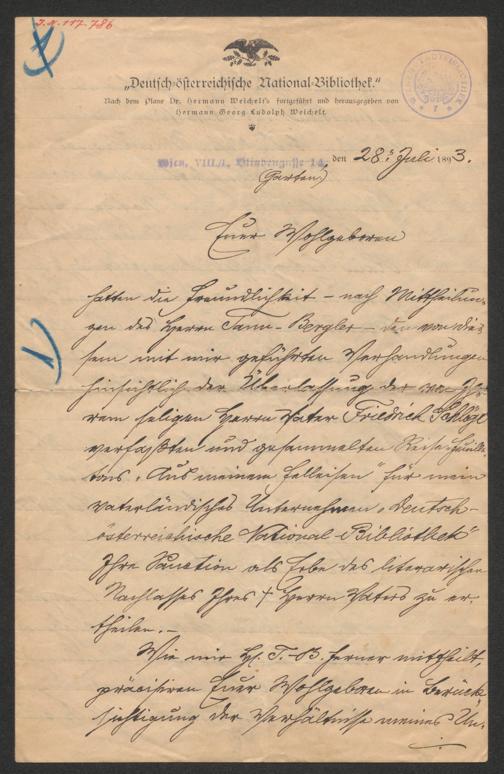 J.N. 117.786
„Deutsch-österreichische National-Bibliothek."
Nach dem Plane Dr. Hermann Weichelt's fortgeführt und herausgegeben von
Hermann Georg Rudolph Weichelt.
Wien, VIII/1, Blindengasse den 28. Juli 1893.
Garten)
Euer Wohlgeboren
hatten die Freundlichkeit – nach Mittheilun-
gen des Herrn Tann-Bergler – den von die-
sem mit mir geführten Verhandlungen
hinsichtlich der Überlassung der von Ih-
rem seligen Herrn Vater Friedrich Schlögl
verfaßten und gesammelten Reisefeuille-
tons „Aus meinem Felleisen" für mein
vaterländisches Unternehmen „Deutsch-
österreichische National-Bibliothek"
Ihre Sanction als Erbe des literarischen
Nachlasses Ihres † Herrn Vaters zu er-
theilen.–
Wie mir H. T.-B. ferner mittheilt,
präcisiren Euer Wohlgeboren in Berück-
sichtigung der Verhältnisse meines Un-